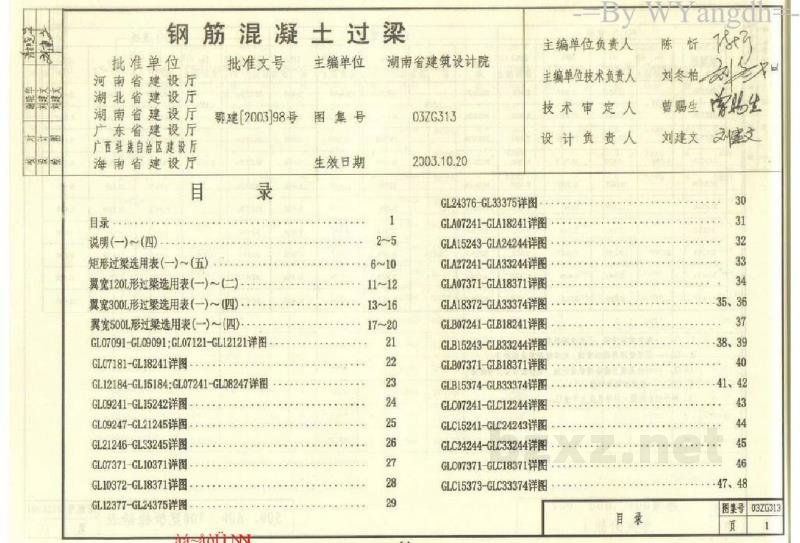 -=By WYangdh=-
钢筋混凝土过梁
批准单位 批准文号 主编单位 湖南省建筑设计院
河南省建设厅
湖北省建设厅
湖南省建设厅 鄂建[2003]98号 图集号 03ZG313
广东省建设厅
广西壮族自治区建设厅
海南省建设厅 生效日期 2003.10.20
主编单位负责人 陈忻
主编单位技术负责人 刘冬柏
技术审定人 曾赐生 曾赐生
设计负责人 刘建文 刘建文
目录
目录 1
说明(一)~(四) 2~5
矩形过梁选用表(一)~(五) 6~10
翼宽120L形过梁选用表(一)~(二) 11~12
翼宽300L形过梁选用表(一)~(四) 13~16
翼宽500L形过梁选用表(一)~(四) 17~20
GL07091-GL09091;GL07121-GL12121详图 21
GL07181-GL18241详图 22
GL12184-GL15184;GL07241-GL08247详图 23
GL09241-GL15242详图 24
GL09247-GL21245详图 25
GL21246-GL33245详图 26
GL07371-GL10371详图 27
GL10372-GL18371详图 28
GL12377-GL24375详图 29
GL24376-GL33375详图 30
GLA07241-GLA18241详图 31
GLA15243-GLA24244详图 32
GLA27241-GLA33244详图 33
GLA07371-GLA18371详图 34
GLA18372-GLA33374详图 35、36
GLB07241-GLB18241详图 37
GLB15243-GLB33244详图 38、39
GLB07371-GLB18371详图 40
GLB15374-GLB33374详图 41、42
GLC07241-GLC12244详图 43
GLC15241-GLC24243详图 44
GLC24244-GLC33244详图 45
GLC07371-GLC18371详图 46
GLC15373-GLC33374详图 47、48
目录 图集号 03ZG313
页 1